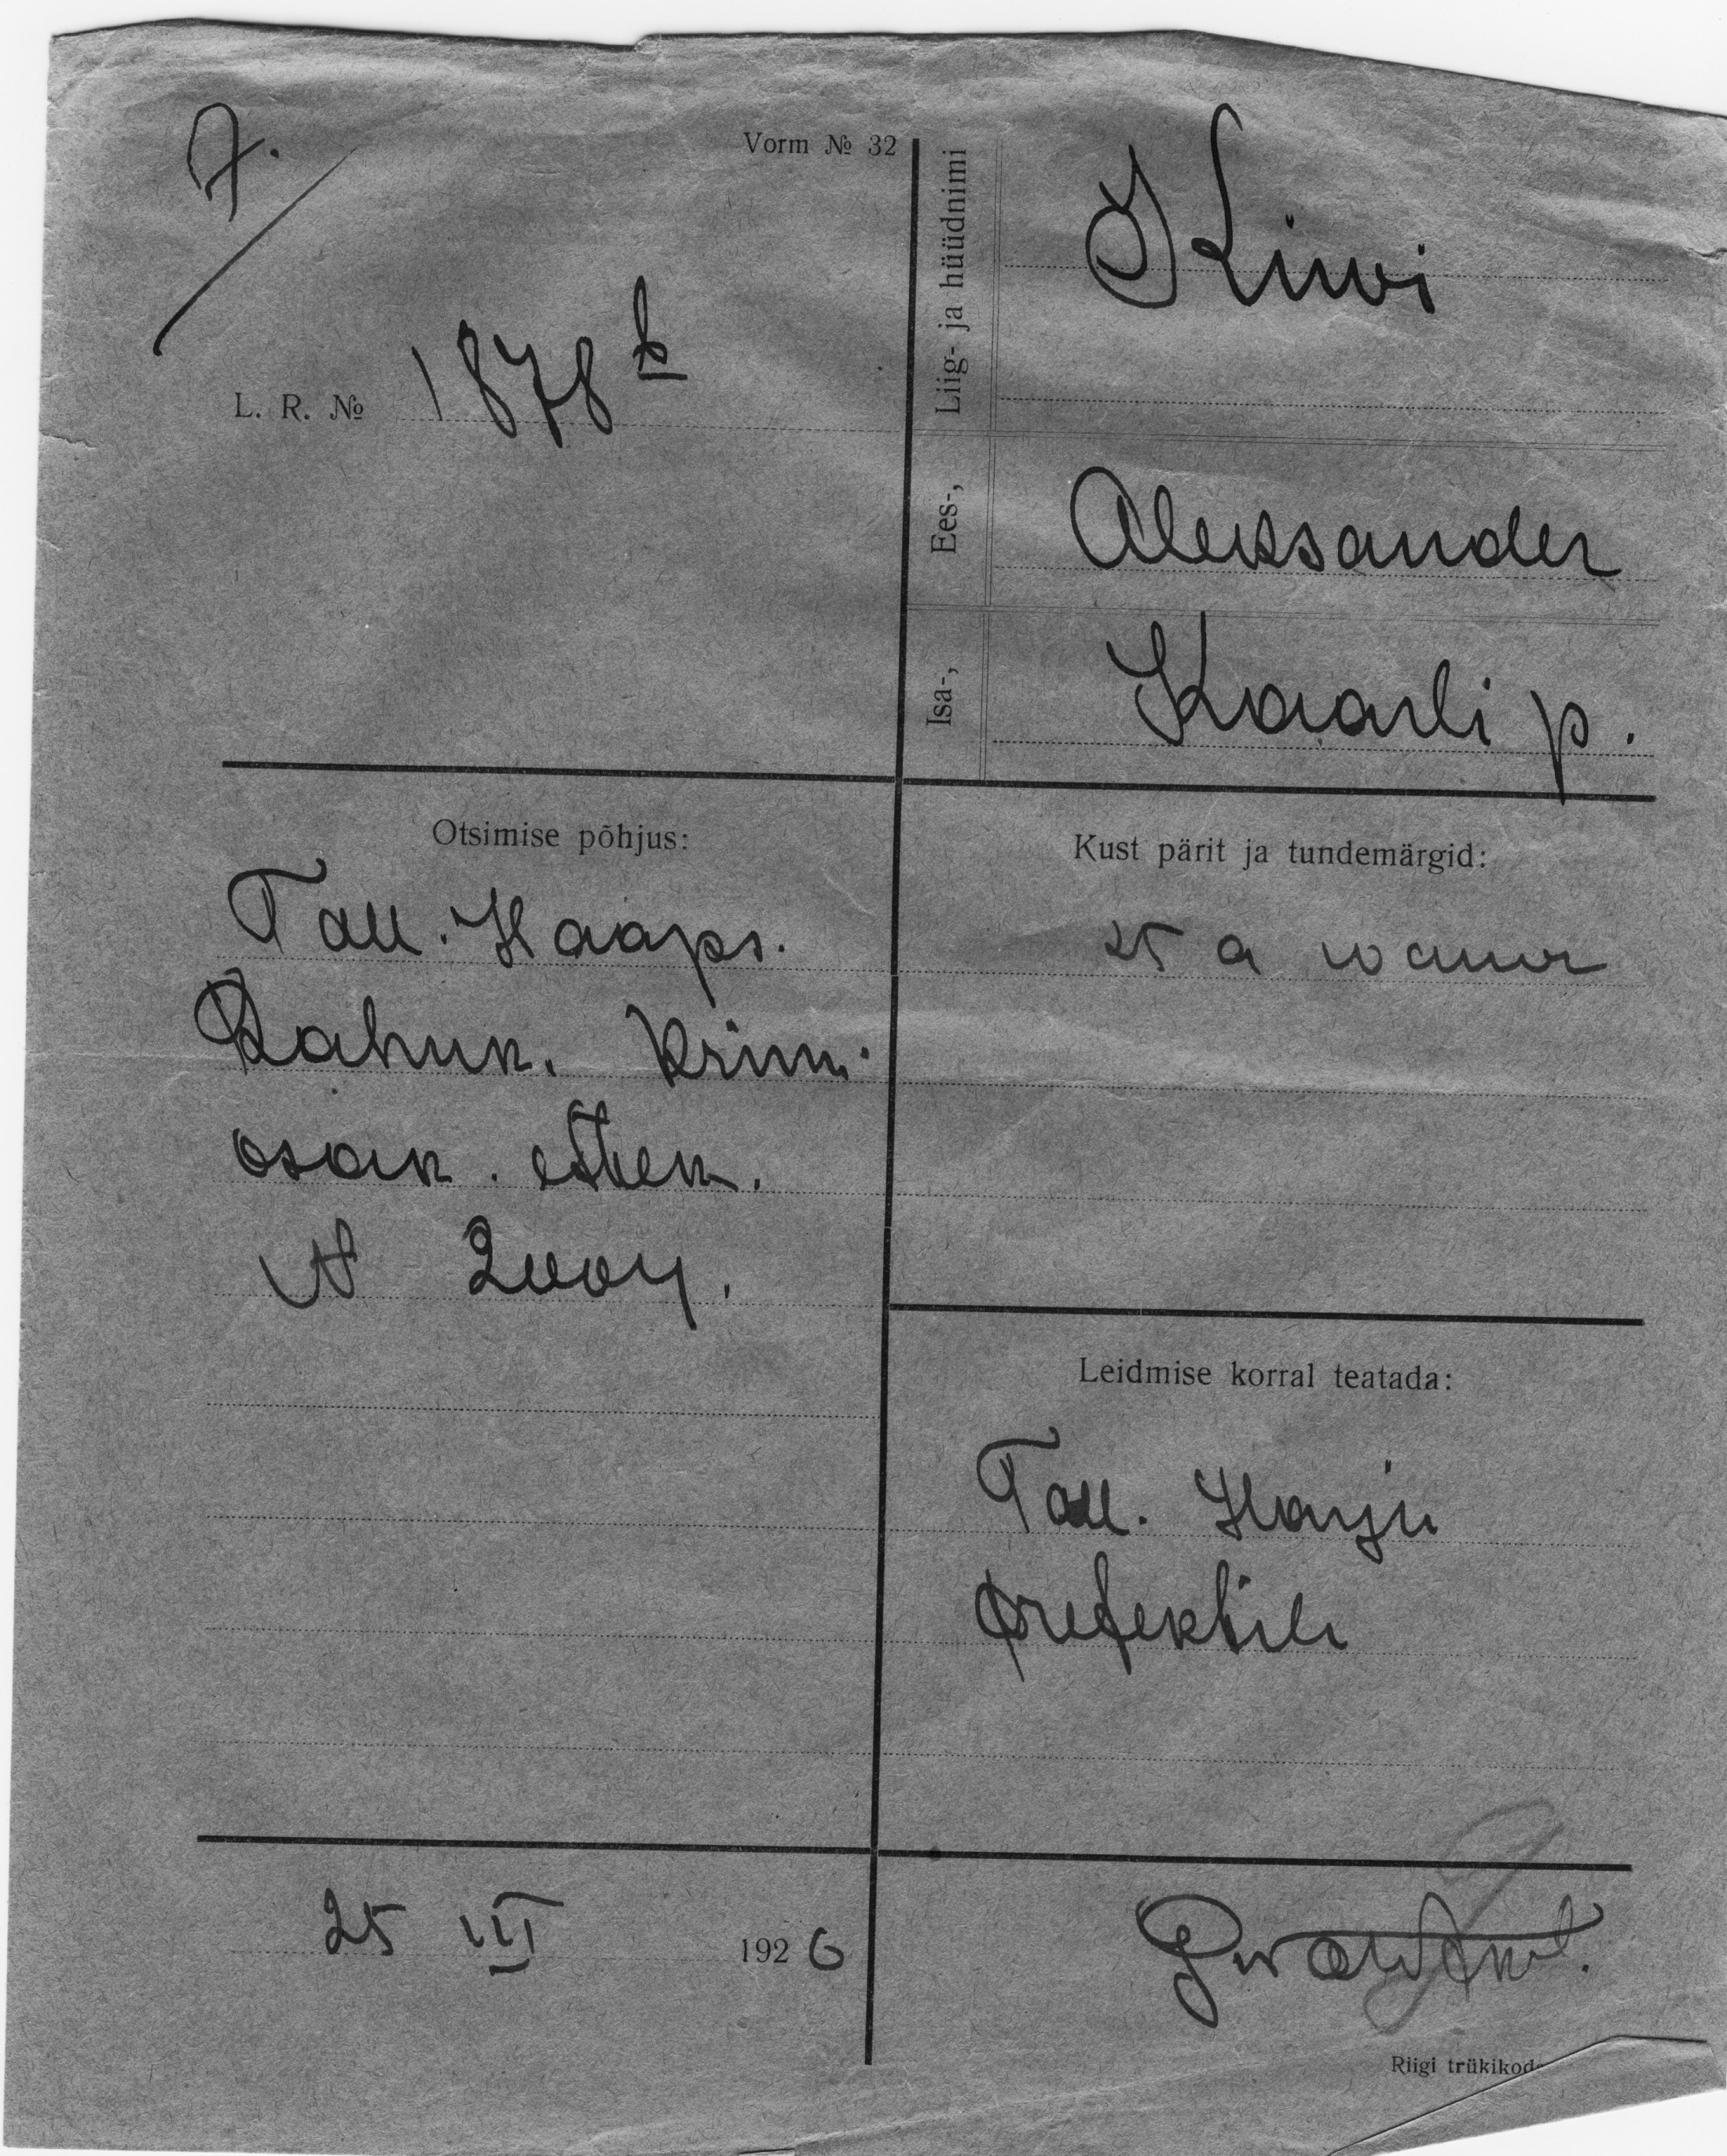 7.
Vorm № 32
L. R. № 1878 k
Liig- ja hüüdnimi
Kiwi
Ees-,
Aleksander
Isa-,
Kaarli p.
Otsimise põhjus:
Tall. Haaps.
Rahuk. krim.
osak. ettek.
№
Kust pärit ja tundemärgid:
25 a wanur
Leidmise korral teatada:
Tall. Harju
prefektile
25 III 1926
Riigi trükikoda